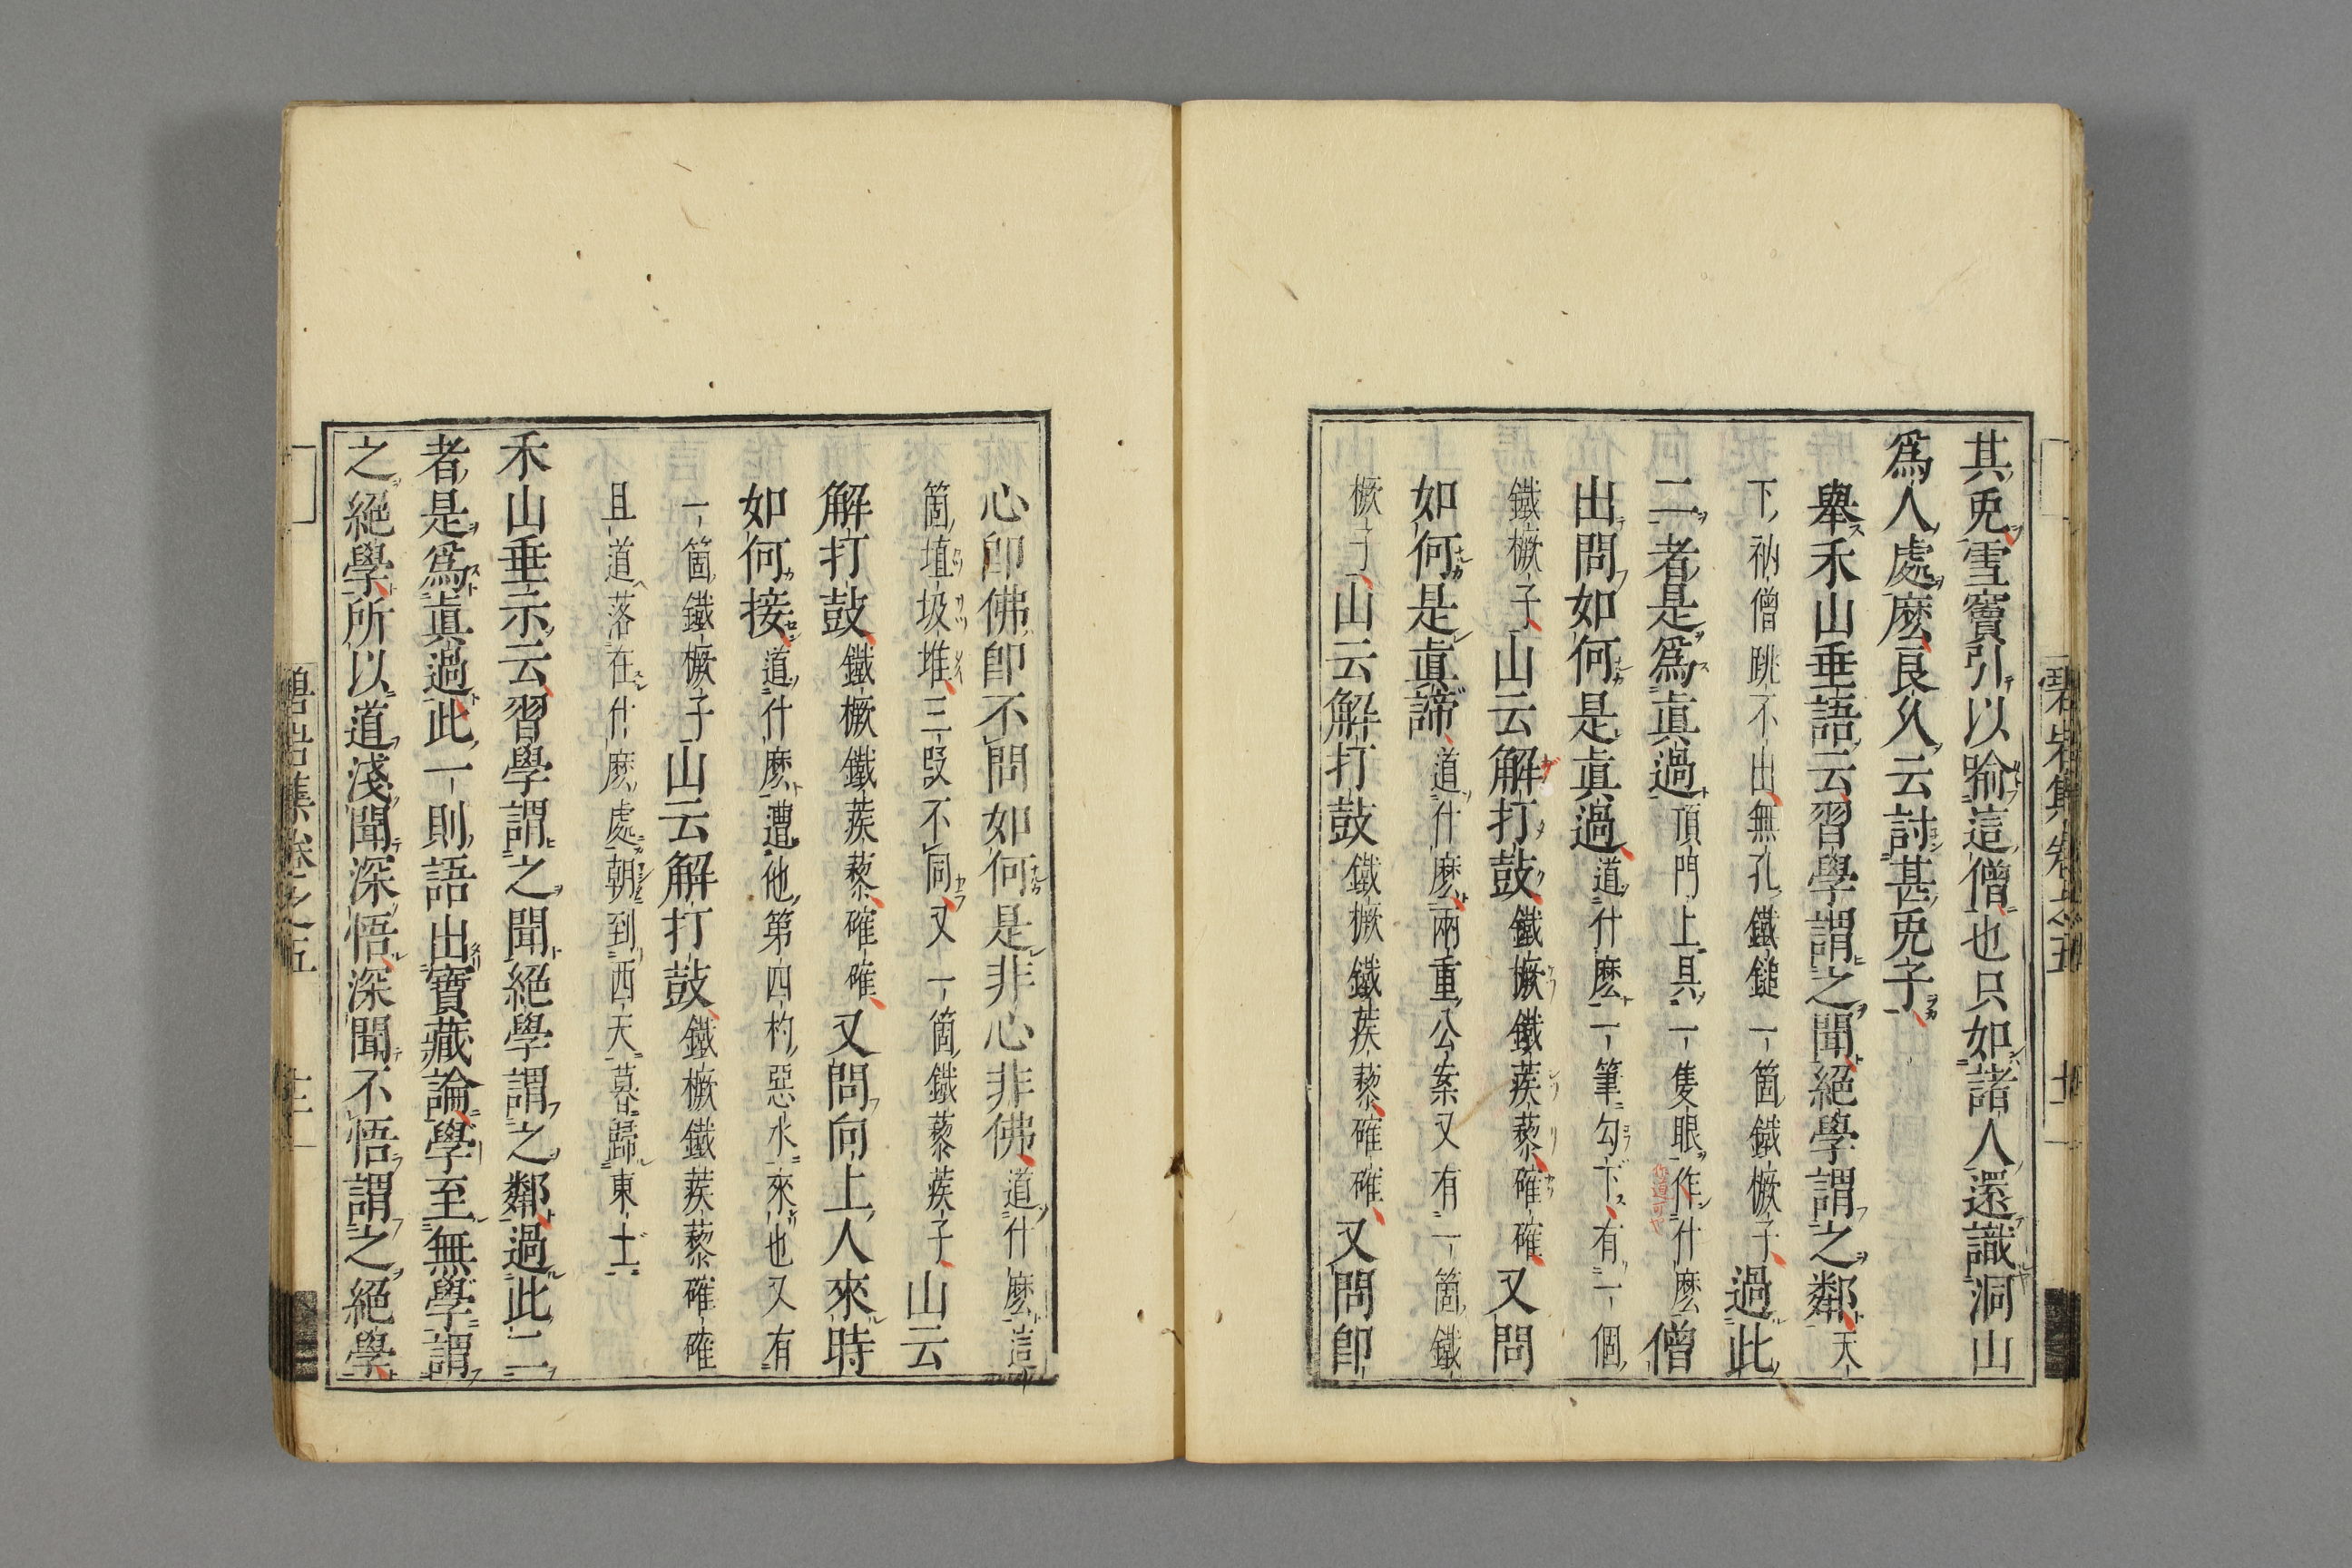 其兎雪竇引以喻這僧也只如諸人還識洞山
爲人處麽良久云討甚兎子
擧禾山垂語云習學謂之聞絕學謂之鄰天
下衲僧跳不出無孔鐵鎚一箇鐵橛子過此
二者是爲眞過頂門上具一隻眼作什麽僧
出問如何是眞過道什麽一筆勾下有一個
鐵橛子山云解打鼓鐵橛鐵蒺藜確確又問
如何是眞諦道什麽兩重公案又有一箇鐵
橛子山云解打鼓鐵橛鐵蒺藜確確又問卽
碧岩集卷之五
心卽佛卽不問如何是非心非佛道什麽這
箇𡋯圾堆三段不同又一箇鐵藜蒺子山云
解打鼓鐵橛鐵蒺藜確確又問向上人來時
如何接道什麽遭他第四杓惡水來也又有
一箇鐵橛子山云解打鼓鐵橛鐵蒺藜確確
且道落在什麽處朝到西天暮歸東土
禾山垂示云習學謂之聞絕學謂之鄰過此二
者是爲眞過此一則語出寶藏論學至無學謂
之絕學所以道淺聞深悟深聞不悟謂之絕學
碧岩集卷之五